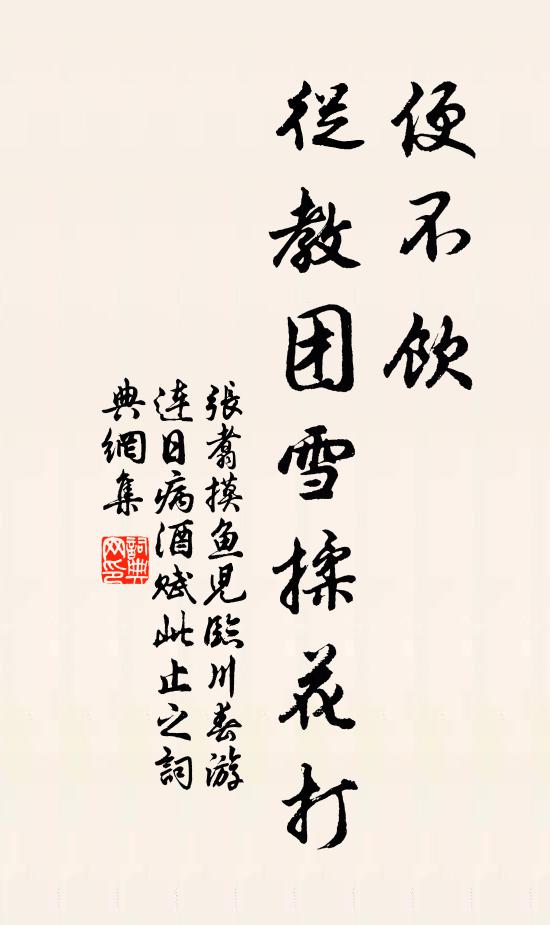 便不飲
從教团雪揉花打
張翥摸鱼児臨川春游
連日病酒赋此止之詞
典網集
詞典
网印